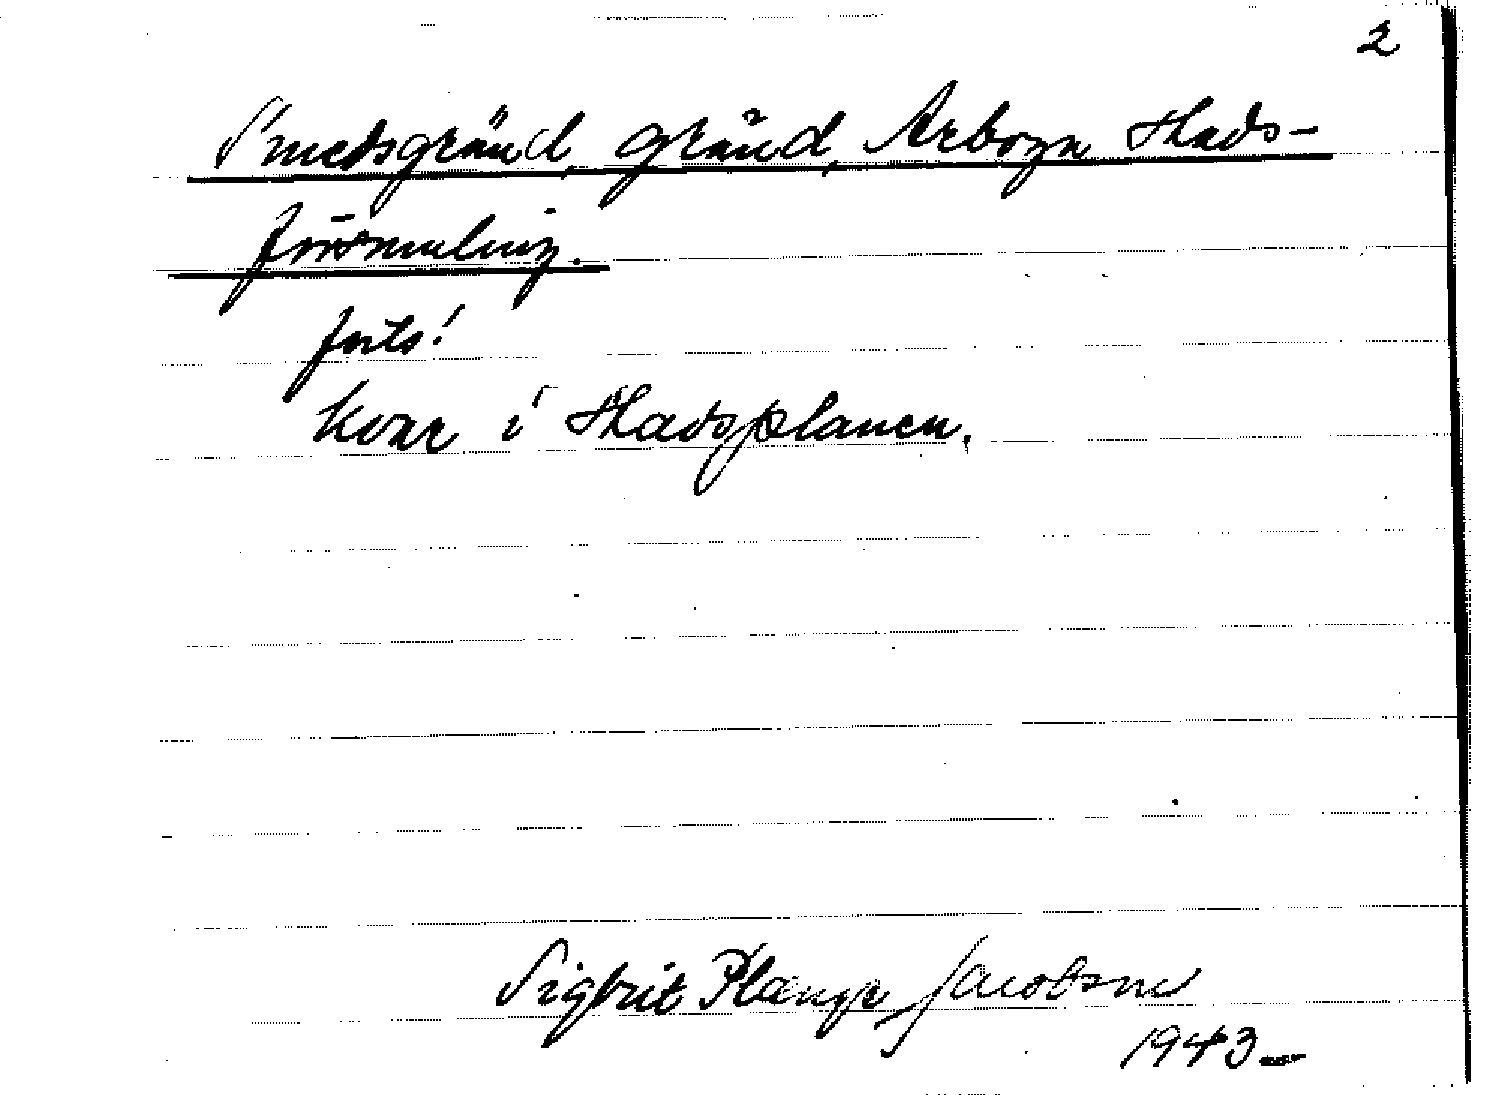 2
Smedsgränd, gränd, Arboga stads-
församling.
forts!
kvar i stadsplanen.
Sigbrit Plænge Jacobson
1943-